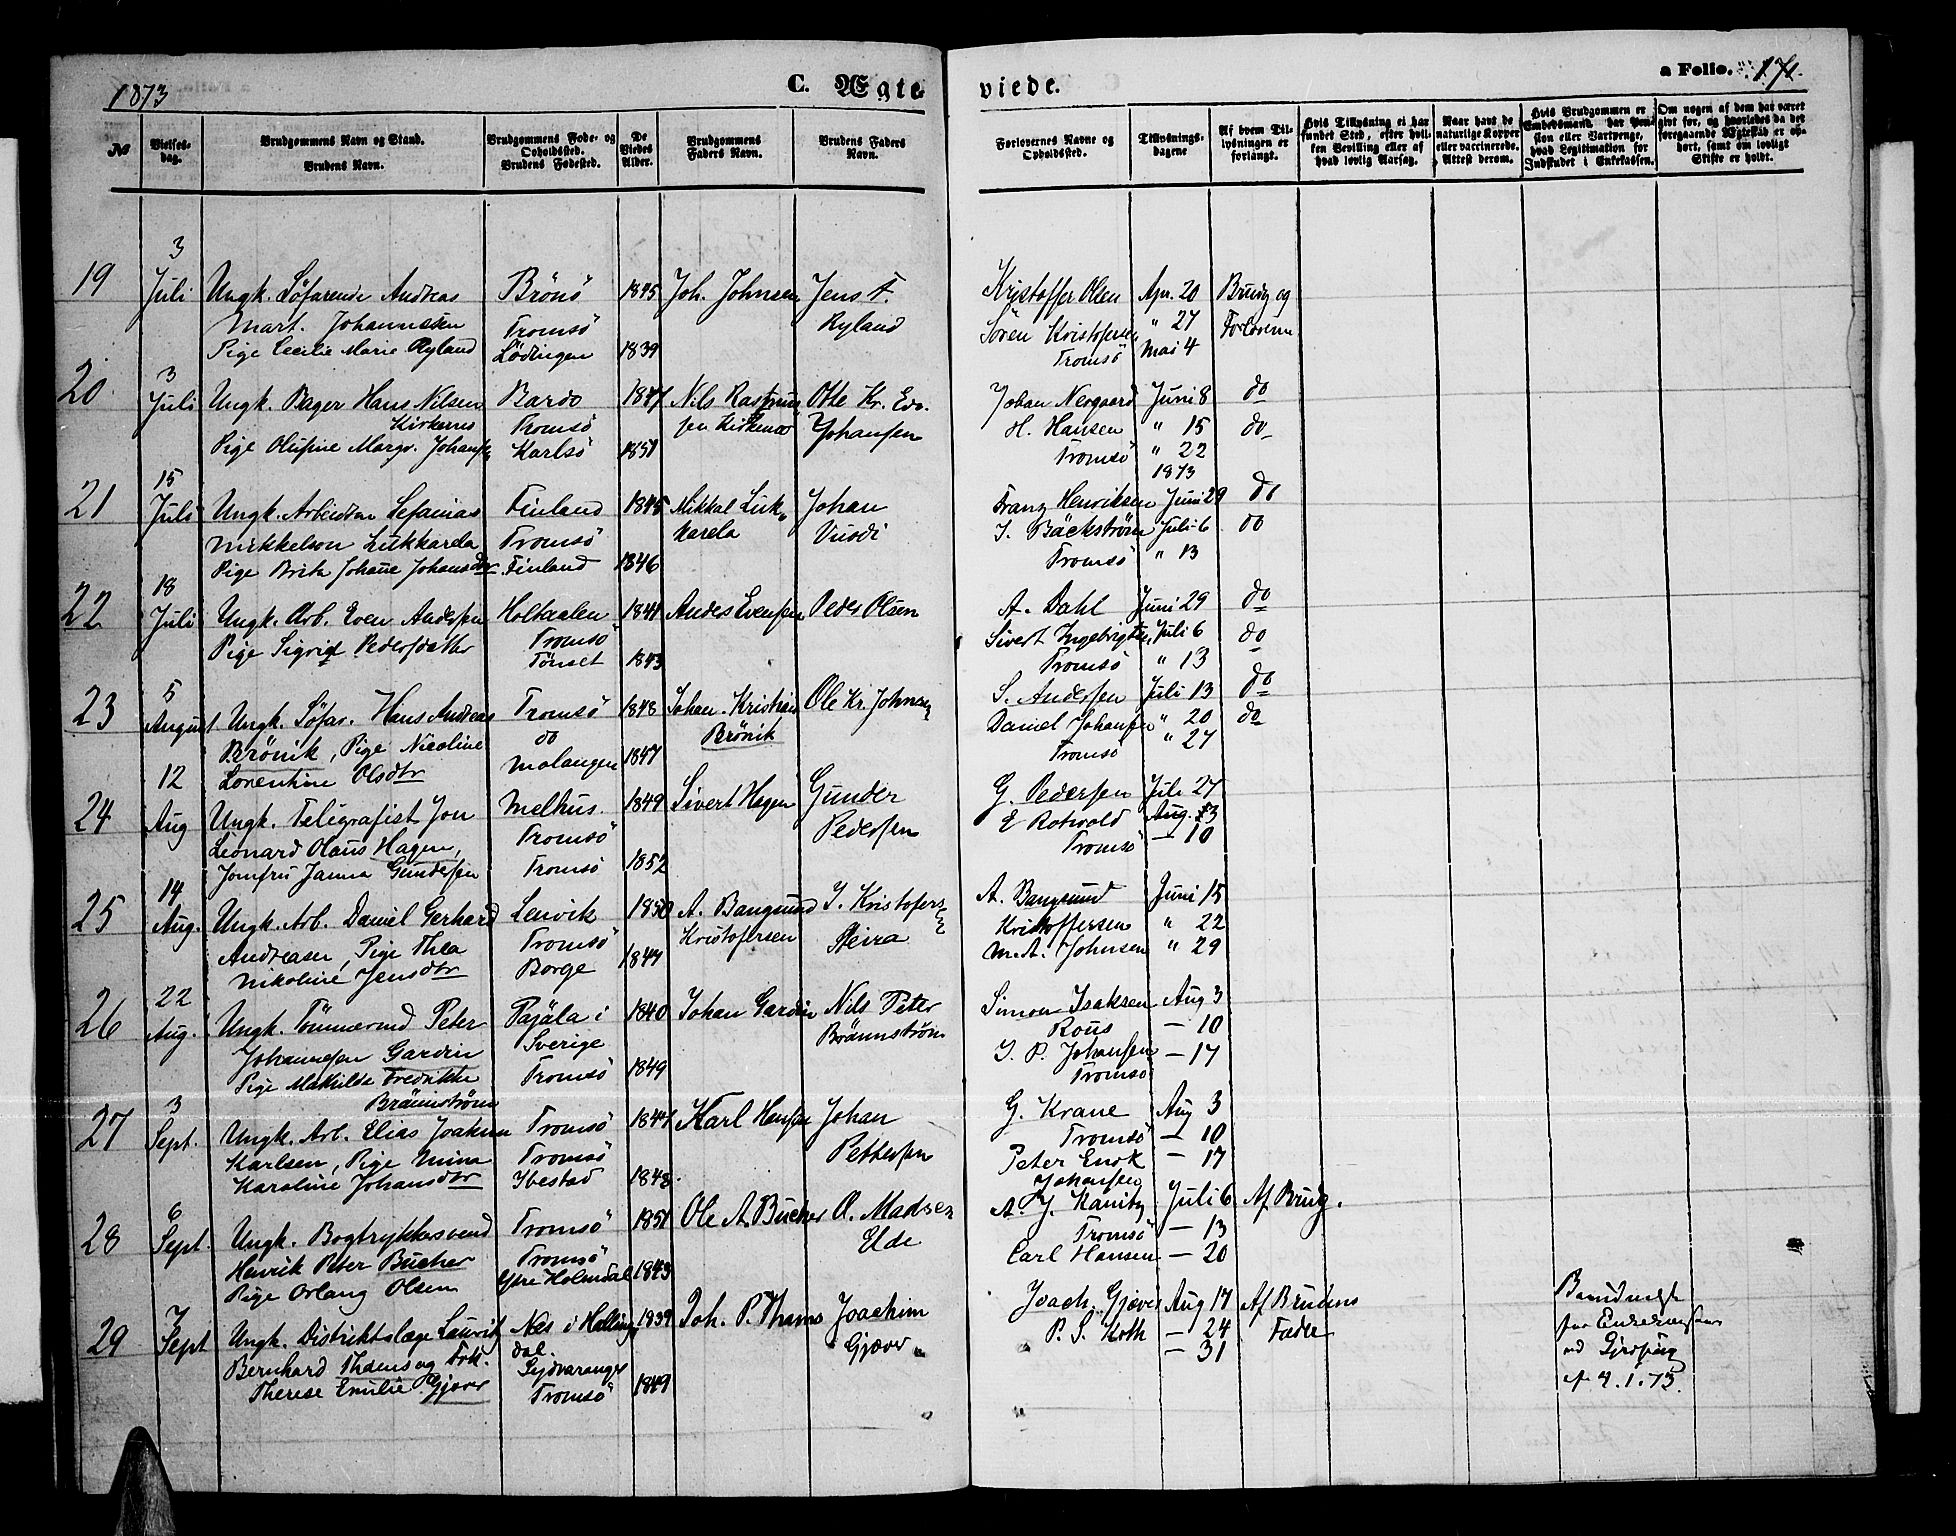 1873
C. Ægte
viede.
a Folio. 171.
No
Vielses-
dag.
Brudgommens Navn og Stand.
Brudens Navn.
Brudgommens Føde- og
Opholdssted.
Brudens Fødested.
De
Viedes
Alder.
Brudgommens
Faders Navn.
Brudens Faders
Navn.
Forlovernes Navne og
Opholdssted.
Tillysnings-
dagene
Af hvem Til-
lysningen er
forlangt.
Hvis Tillysning ei har
fundet Sted, efter hvil-
ken Bevilling eller af
hvad lovlig Aarsag.
Naar havt de
naturlige Kopper
eller vaccinerede.
Attest derom.
Hvis Brudgommen er
Embedsmand, har Pen-
sion eller Vartpenge,
hvad Legitimation for
Indskudet i Enkekassen.
Om nogen af dem har været
gift før, og hvorledes da det
foregaaende Ægteskab er op-
hørt, samt om lovligt
Skifte er holdt.
19 3 Juli Ungk. Söfarende Andreas Brönö 1845 Joh. Johnsen Jens F. Kristoffer Olsen Apr. 20 Brudg og
Mart. Johannessen Tromsö Ryland Sören Kristofersen " 27 Forlovern
Pige Cecilie Marie Ryland Lödingen 1839 Tromsö Mai 4
20 3 Juli Ungk. Bager Hans Nilsen Bardo 1847 Nils Rastrup Otte Kr. Edv. Johan Nergaard Juni 8 do
Kirkenes Tromsö Johansen H. Hansen " 15 do
Pige Olufine Margr. Johansen Karlsö 1851 Tromsö " 22
1873
21 15 Juli Ungk. Arbeidsm Sefanias Finland 1845 Mikkal Luk- Johan Franz Henriksen Juni 29 do
Mikkelson Lukkarela Tromsö karela Vuodi I. Bäckström Juli 6 do
Pige Brita Johane Johansdtr. Finland 1846 Tromsö " 13
22 18 Juli Ungk. Arb. Even Andersen Holtaalen 1841 Andes Evensen Peder Olsen A. Dahl Juni 29 do
Pige Sigrid Pedersdatter Tromsö Sivert Ingebrigtsen Juli 6 do
Tönset 1843 Tromsö " 13
23 5 August Ungk. Söfar. Hans Andreas Tromsö 1848 Johan Kristian Ole Kr. Johnsen S. Andersen Juli 13 do
Brönik, Pige Nicoline do Brönik Daniel Johansen " 20 do
Lorentine Olsdtr Malangen 1847 Tromsö " 27
24 12 Aug Ungk. Telegrafist Jon Melhus. 1849 Sivert Hagen Gunder G. Pedersen Juli 27
Leonard Olaus Hagen, Tromsö Pedersen E Rotvold Aug. 3
Jomfru Janna Gundersen Tromsö 1852 Tromsö — 10
25 14 Aug. Ungk. Arb. Daniel Gerhard Lenvik 1850 A. Bangsund J. Kristofers A. Bangsund Juni 15
Andreasen, Pige Thea Tromsö Kristofersen Kristoffersen " 22
Nikoline Jensdtr Borge 1847 M. A. Johnsen " 29
26 22 Aug. Ungk. Tömmermd Peter Pajäla i 1840 Johan Gardin Nils Peter Simon Isaksen Aug 3
Johannesen Gardin Sverige Brännström — 10
Pige Mathilde Fredrikke Tromsö 1849 J. P. Johansen — 17
Brännström Tromsö
27 3 Sept. Ungk. Arb. Elias Joakim Tromsö 1847 Karl Hansen Johan G. Krane Aug 3
Karlsen, Pige Mina Tromsö Pettersen Tromsö — 10
Karoline Johansdtr Ibestad 1848. Peter Enok — 17
Johansen
28 6 Sept. Ungk. Bogtrykkersvend Tromsö 1851 Ole A. Bucher O. Madsen A. J. Kanitz Juli 6 Af Brudg.
Henrik Peter Bucher Tromsö Elde Tromsö — 13
Pige Orlaug Olsen Ytre Holmedal 1843 Carl Hansen — 20
29 7 Sept Ungk. Distriktslæge Lauritz Nes i Halling 1839 Joh. P. Thams Joachim Joach. Gjæver Aug 17 Af Brudens
Bernhard Thams og Frk. dal. Gjæver P. S. Koth — 24 Fader
Therese Emilie Gjæver Sydvaranger — 31
Tromsö 1849
af 9.1.73.